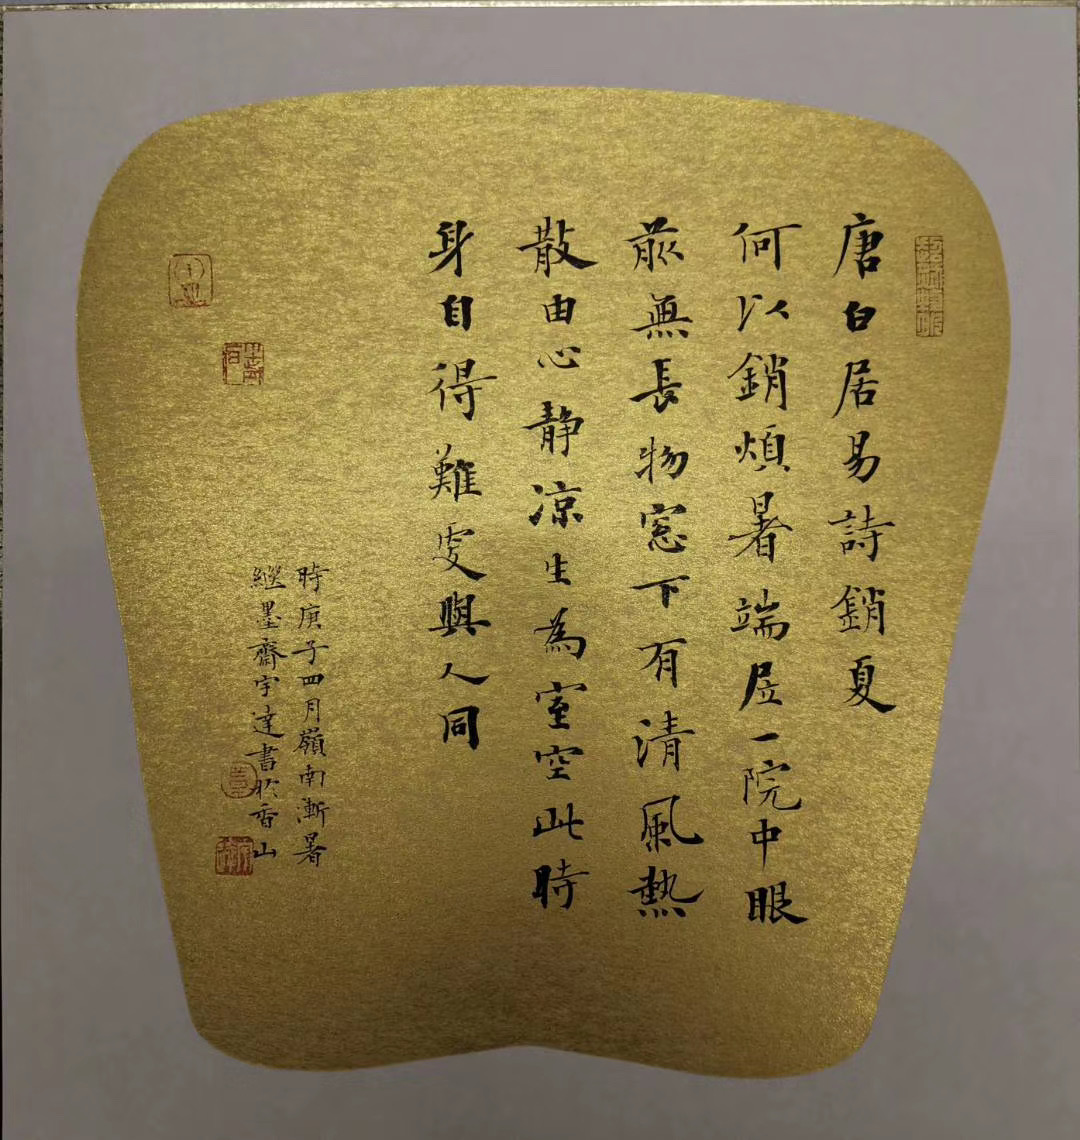 唐白居易詩銷夏
何以銷煩暑端居一院中眼
前無長物窓下有清風熱
散由心静凉生為室空此時
身自得難更與人同
時庚子四月嶺南漸暑
繼墨齋宇達書於香山